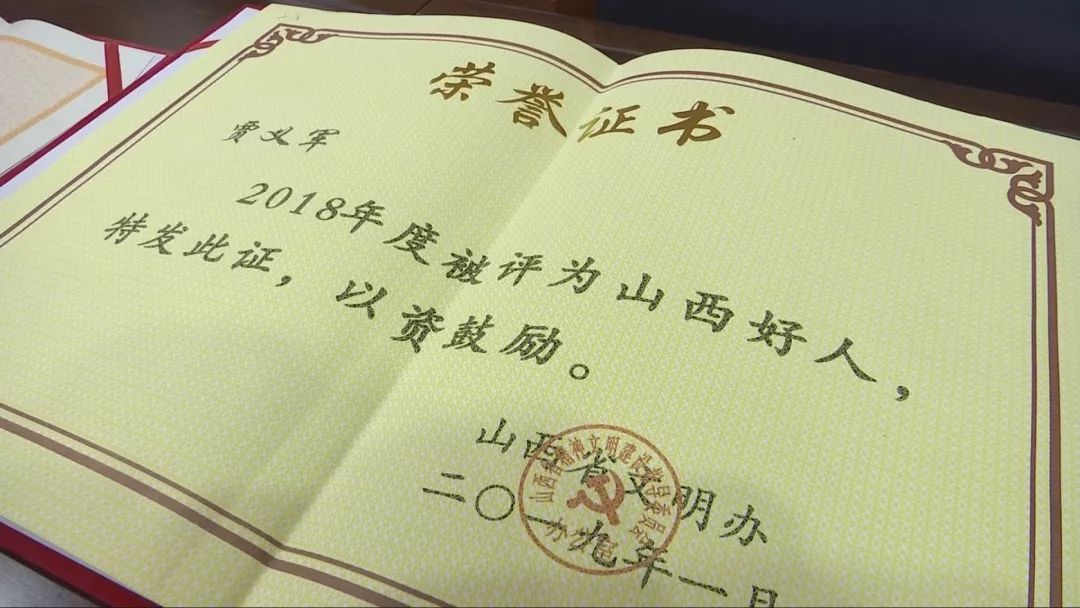 荣誉证书
贾义军
2018年度被评为山西好人，
特发此证，以资鼓励。
山西省文明办
二〇一九年一月
山西省精神文明建设指导委员会
办公室